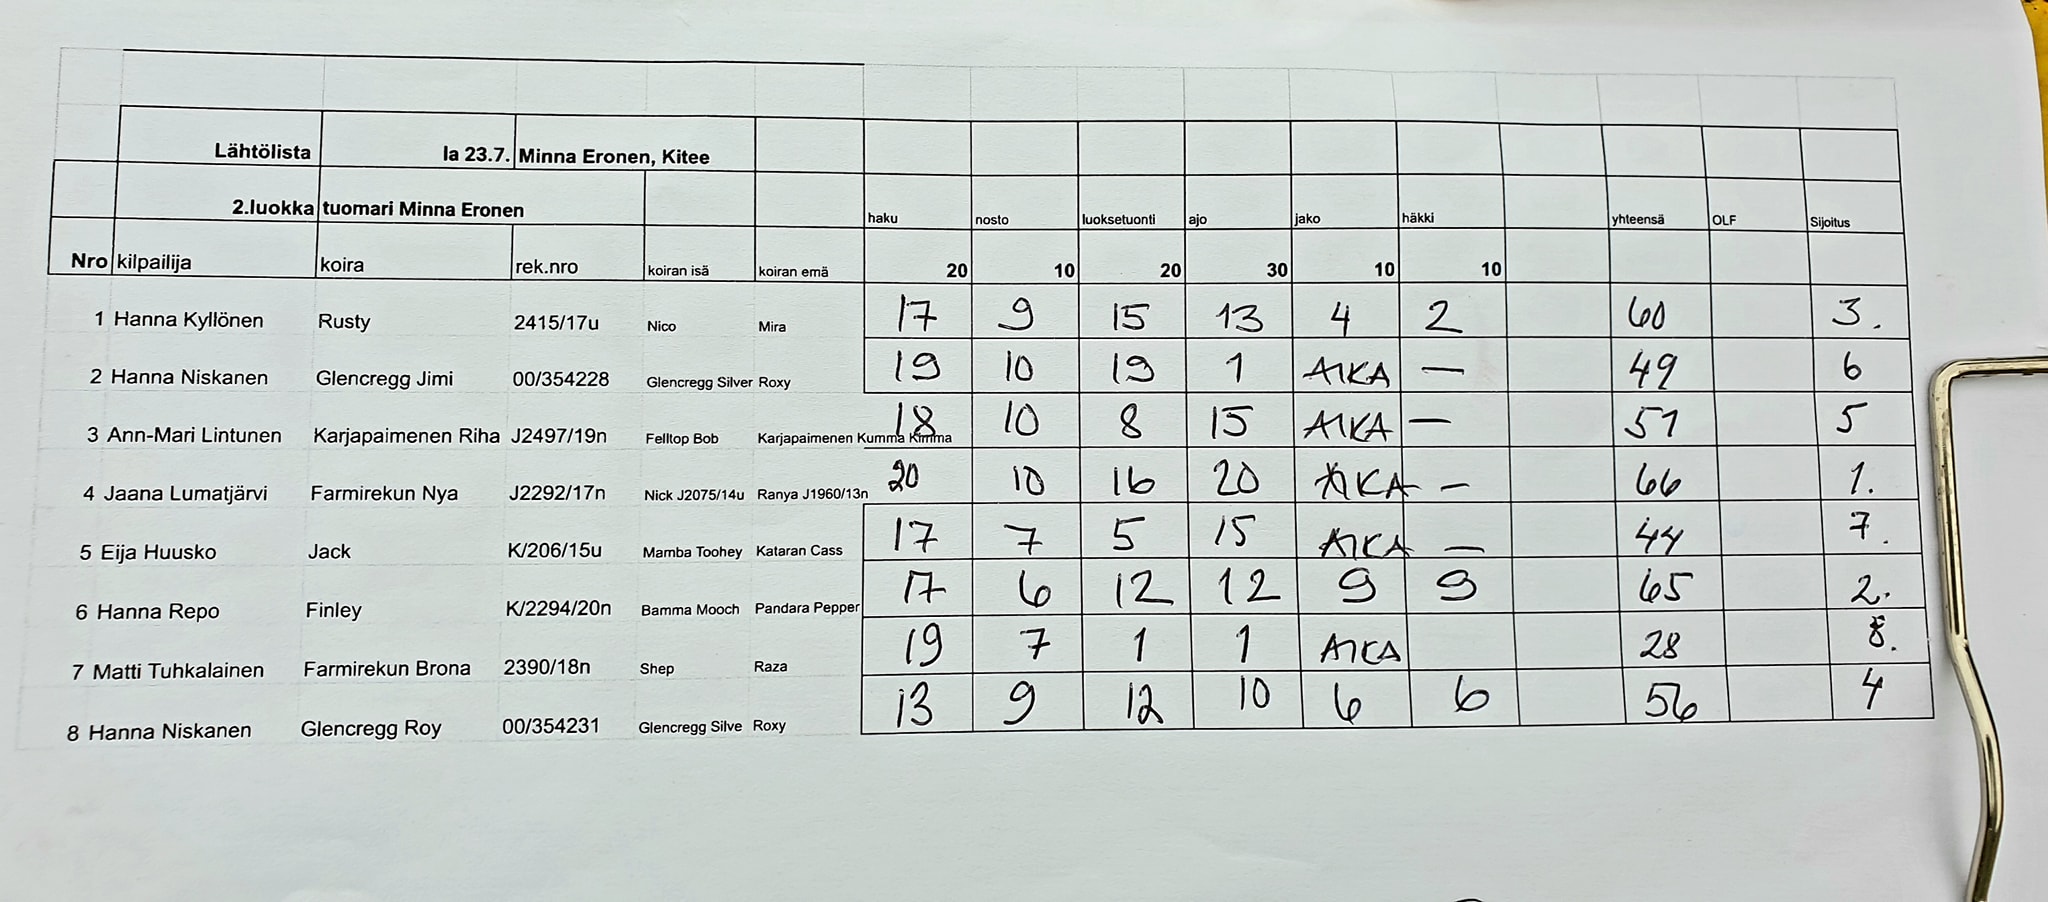 Lähtölista la 23.7. Minna Eronen, Kitee
2.luokka tuomari Minna Eronen haku nosto luoksetuonti ajo jako häkki yhteensä OLF Sijoitus
Nro kilpailija koira rek.nro koiran isä koiran emä 20 10 20 30 10 10
1 Hanna Kyllönen Rusty 2415/17u Nico Mira 17 9 15 13 4 2 60 3.
2 Hanna Niskanen Glencregg Jimi 00/354228 Glencregg Silver Roxy 19 10 19 1 AIKA — 49 6
3 Ann-Mari Lintunen Karjapaimenen Riha J2497/19n Felltop Bob Karjapaimenen Kumma Kimma 18 10 8 15 AIKA — 51 5
4 Jaana Lumatjärvi Farmirekun Nya J2292/17n Nick J2075/14u Ranya J1960/13n 20 10 16 20 AIKA — 66 1.
5 Eija Huusko Jack K/206/15u Mamba Toohey Kataran Cass 17 7 5 15 AIKA — 44 7.
6 Hanna Repo Finley K/2294/20n Bamma Mooch Pandara Pepper 17 6 12 12 9 9 65 2.
7 Matti Tuhkalainen Farmirekun Brona 2390/18n Shep Raza 19 7 1 1 AIKA 28 8.
8 Hanna Niskanen Glencregg Roy 00/354231 Glencregg Silve Roxy 13 9 12 10 6 6 56 4